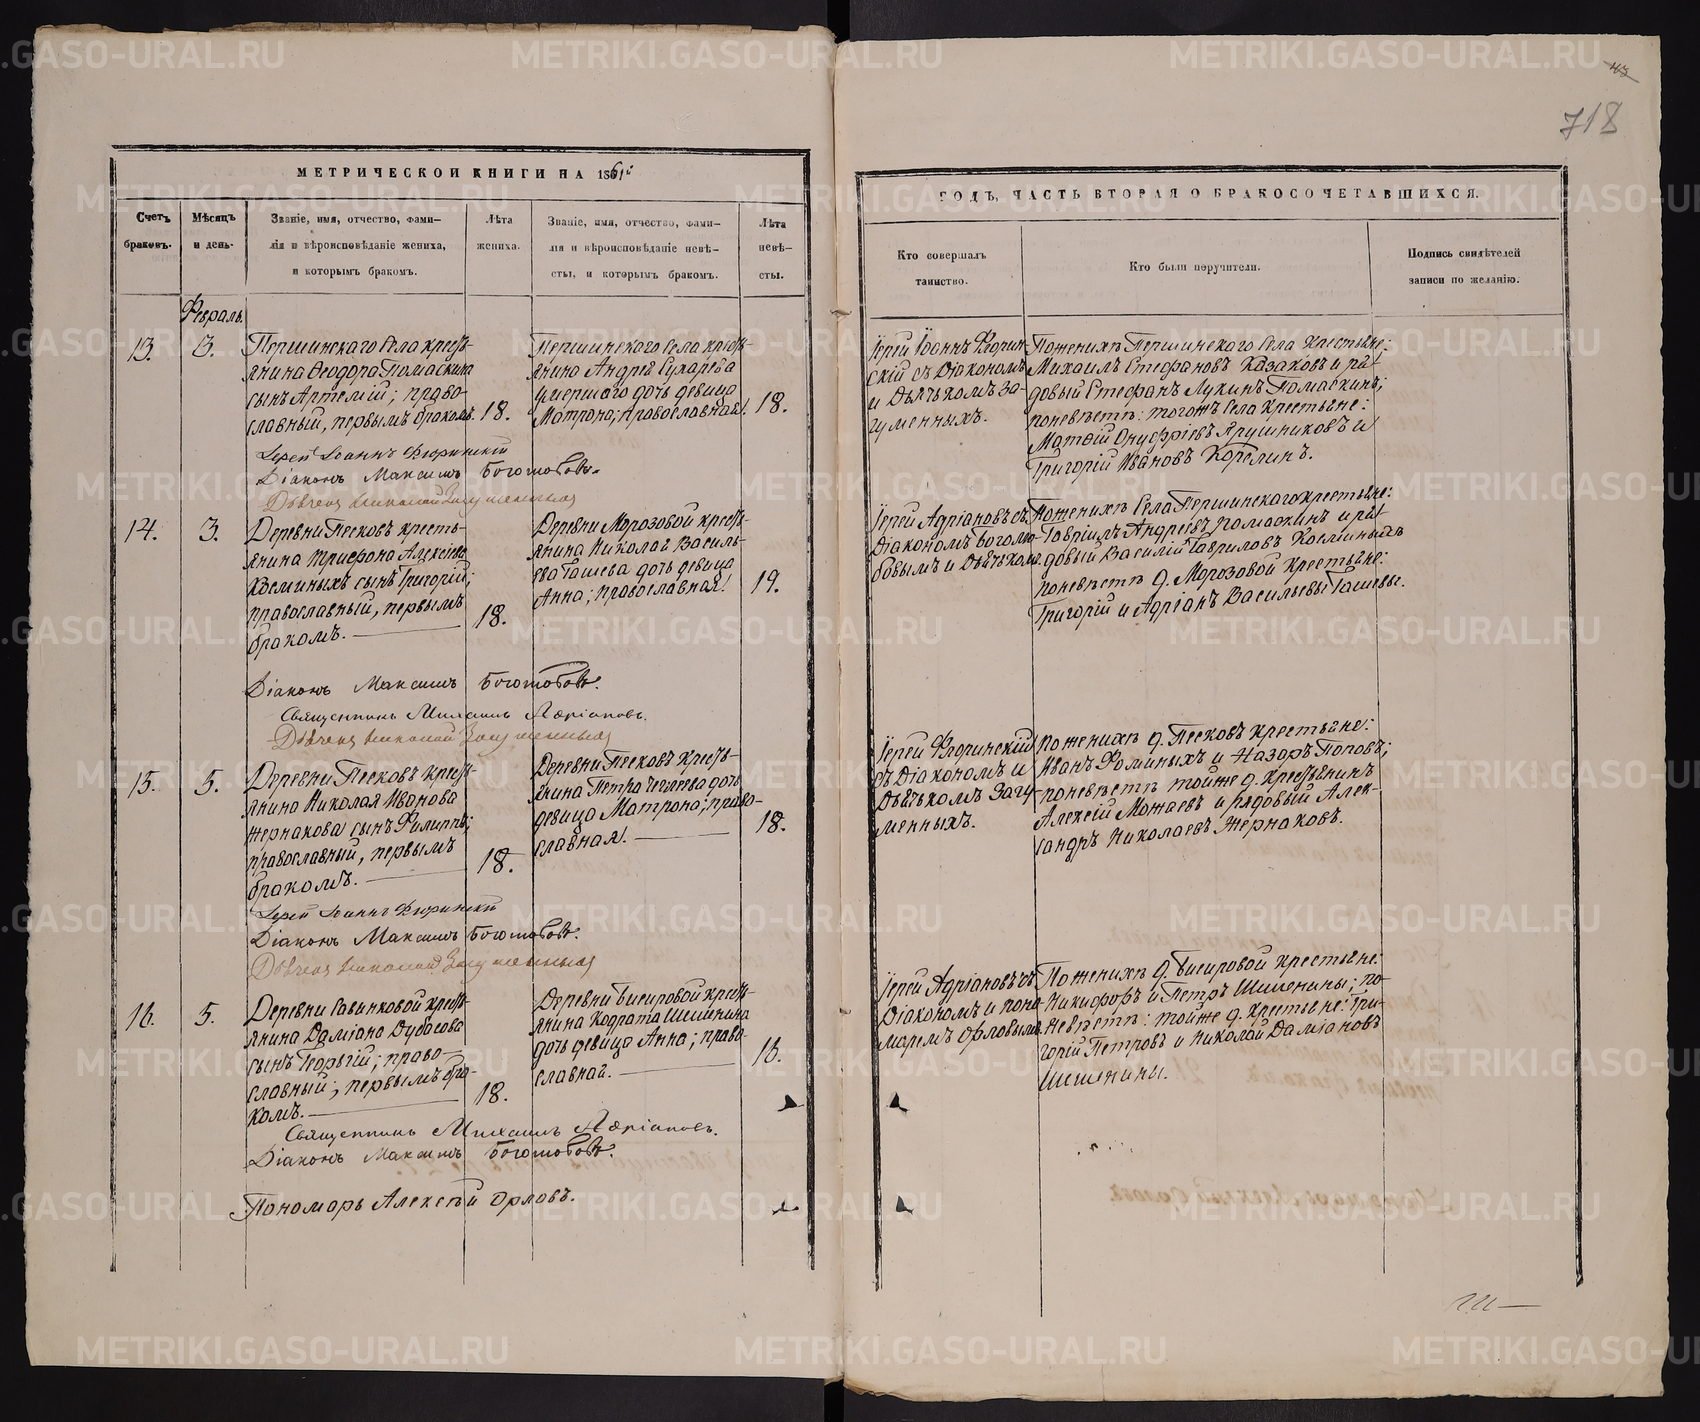 718
МЕТРИЧЕСКОЙ КНИГИ НА 1861й
Счетъ браковъ.
Мѣсяцъ и день.
Званіе, имя, отчество, фами-
лія и вѣроисповѣданіе жениха,
и которымъ бракомъ.
Лѣта
жениха.
Званіе, имя, отчество, фами-
лія и вѣроисповѣданіе невѣ-
сты, и которымъ бракомъ.
Лѣта
невѣ-
сты.
Февраль.
13.
3.
Першинскаго Села кресть-
янина Ѳеодора Помаскина
сынъ Артемій; право-
славный, первымъ бракомъ.
18.
Першинскаго Села кресть-
янина Андрея Сухарева
умершаго дочь девица
Матрона, православная.
18.
Іерей Іоаннъ Флоринскій
Діаконъ Максимъ Боголюбовъ.
Дьячекъ Николай Загуменныхъ
14.
3.
Деревни Песковъ кресть-
янина Трифона Алексѣева
Косминыхъ сынъ Григорій;
православный, первымъ
бракомъ.
18.
Деревни Морозовой кресть-
янина Николая Василь-
ева Ташева дочь девица
Анна; православная.
19.
Діаконъ Максимъ Боголюбовъ.
Священникъ Михаилъ Адріановъ.
Дьячекъ Николай Загуменныхъ
15.
5.
Деревни Песковъ кресть-
янина Николая Иванова
Жернакова сынъ Филиппъ;
православный, первымъ
бракомъ.
18.
Деревни Песковъ кресть-
янина Петра дочь
девица Матрона; право-
славная.
18.
Іерей Іоаннъ Флоринскій
Діаконъ Максимъ Боголюбовъ.
Дьячекъ Николай Загуменныхъ
16.
5.
Деревни Савинковой кресть-
янина Даміана Дубасова
сынъ Георгій; право-
славный; первымъ бра-
комъ.
18.
Деревни Бисировой кресть-
янина Кодрата Шишенина
дочь девица Анна; право-
славная.
18.
Священникъ Михаилъ Адріановъ.
Діаконъ Максимъ Боголюбовъ.
Пономарь Алексѣй Орловъ.
ГОДЪ, ЧАСТЬ ВТОРАЯ О БРАКОСОЧЕТАВШИХСЯ.
Кто совершалъ
таинство.
Кто были поручители.
Подпись свидѣтелей
записи по желанію.
Іерей Іоаннъ Флорин-
скій съ Діакономъ
и Дьячкомъ За-
гуменныхъ.
По женихѣ Першинскаго Села Крестьяне:
Михаилъ Стефановъ Казаковъ и ря-
довый Стефанъ Лукинъ Помаскинъ;
по невѣстѣ: тогожъ Села Крестьяне:
Матѳій Онуфріевъ Ярушниковъ и
Григорій Ивановъ Корелинъ.
Іерей Адріановъ съ
Діакономъ Боголю-
бовымъ и Дьячкомъ.
По женихѣ Села Першинскаго крестьяне:
Гавріилъ Андреевъ Помаскинъ и ря-
довый Василій Гавриловъ Косминыхъ
по невѣстѣ д. Морозовой Крестьяне:
Григорій и Адріанъ Васильевы Ташевы.
Іерей Флоринскій
съ Діакономъ и
Дьячкомъ Загу-
менныхъ.
По женихѣ д. Песковъ Крестьяне:
Иванъ Фоминыхъ и Назаръ Поповъ;
по невѣстѣ тойже д. Крестьянинъ
Алексій Можаевъ и рядовый Алек-
сандръ Николаевъ Жернаковъ.
Іерей Адріановъ съ
Діакономъ и поно-
маремъ Орловымъ.
По женихѣ д. Бисировой крестьяне:
Никифоръ и Петръ Шишенины; по
невѣстѣ: тойже д. Крестьяне: Гри-
горій Петровъ и Николай Даміановъ
Шишенины.
METRIKI.GASO-URAL.RU